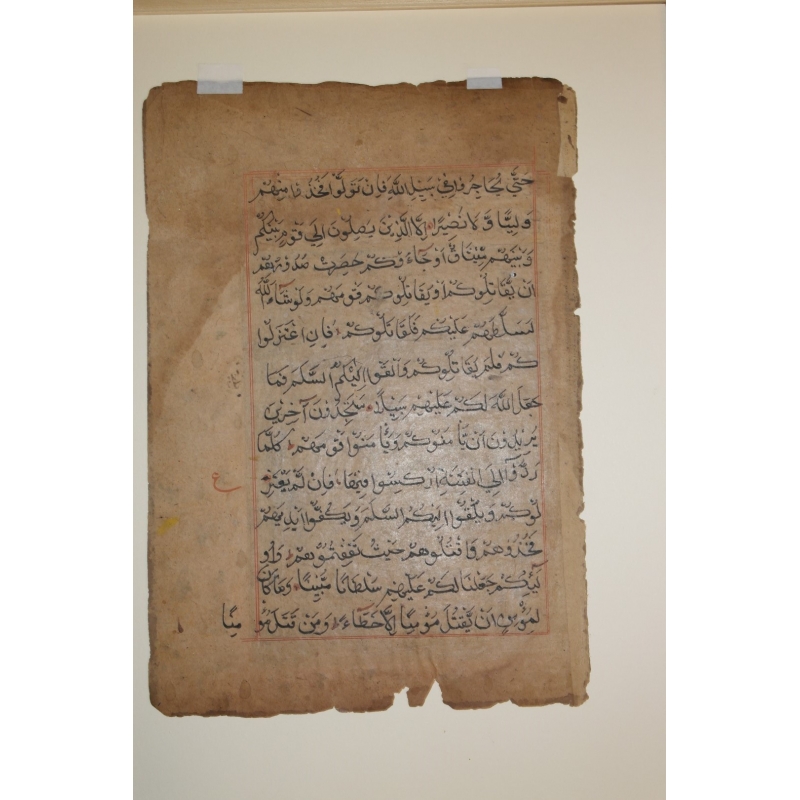 حَتّٰي يُهَاجِرُوا فِي سَبِيْلِ اللّٰهِ فَاِنْ تَوَلَّوْا فَخُذُوْا مِنْهُمْ
وَلِيًّا وَّ لَا نَصِيْرًا اِلَّا الَّذِيْنَ يَصِلُوْنَ اِلٰي قَوْمٍ بَيْنَكُمْ
وَبَيْنَهُمْ مِّيْثَاقٌ اَوْ جَاءُ وْكُمْ حَصِرَتْ صُدُوْرُهُمْ
اَنْ يُّقَاتِلُوْكُمْ اَوْ يُقَاتِلُوْكُمْ قَوْمَهُمْ وَلَوْ شَاءَ اللّٰهُ
لَسَلَّطَهُمْ عَلَيْكُمْ فَلَقَاتَلُوْكُمْ فَاِنِ اعْتَزَلُوْا
كُمْ فَلَمْ يُقَاتِلُوْكُمْ وَاَلْقَوْا اِلَيْكُمُ السَّلَمَ فَمَا
جَعَلَ اللّٰهُ لَكُمْ عَلَيْهِمْ سَبِيْلًا سَتَجِدُوْنَ اٰخَرِيْنَ
يُرِيْدُوْنَ اَنْ يَّاْ مَنُوْكُمْ وَيَاْ مَنُوْا قَوْمَهُمْ كُلَّمَا
رُدُّوْا اِلَي الْفِتْنَةِ اُرْكِسُوْا فِيْهَا فَاِنْ لَّمْ يَعْتَزِ
لُوْكُمْ وَيُلْقُوْا اِلَيْكُمُ السَّلَمَ وَيَكُفُّوْا اَيْدِيَهُمْ
فَخُذُوْهُمْ وَاقْتُلُوْهُمْ حَيْثُ ثَقِفْتُمُوْهُمْ وَاُو
لٰٓئِكُمْ جَعَلْنَا لَكُمْ عَلَيْهِمْ سُلْطَانًا مُّبِيْنًا وَمَا كَانَ
لِمُؤْمِنٍ اَنْ يَّقْتُلَ مُؤْمِنًا اِلَّا خَطَاءً وَمَنْ قَتَلَ مُؤْ مِنًا
ع